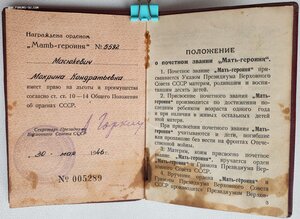 Награждена орденом
„Мать-героиня" № 5592
Масюкевич
Макрина Кондратьевна
имеет право на льготы и преимущества
согласно ст. ст. 10—14 Общего Положения
об орденах СССР.
Секретарь Президиума
Верховного Совета СССР
А. Горкин
30 мая 1946 г.
№ 005289
ПОЛОЖЕНИЕ
о почетном звании „Мать-героиня".
1. Почетное звание „Мать-героиня" присваивается Указом Президиума Верховного
Совета СССР матерям, родившим и воспитавшим
2. Присвоение почетного звания „Мать-героиня" производится по достижении последним ребенком возраста одного года
и при наличии в живых остальных детей
этой матери.
При присвоении почетного звания „Мать-героиня" учитываются и дети, погибшие
или пропавшие без вести на фронтах Отечественной войны.
3. Матерям, коим присвоено звание
„Мать-героиня", вручается орден
„Мать-героиня" и Грамота Президиума Верховного Совета СССР.
3